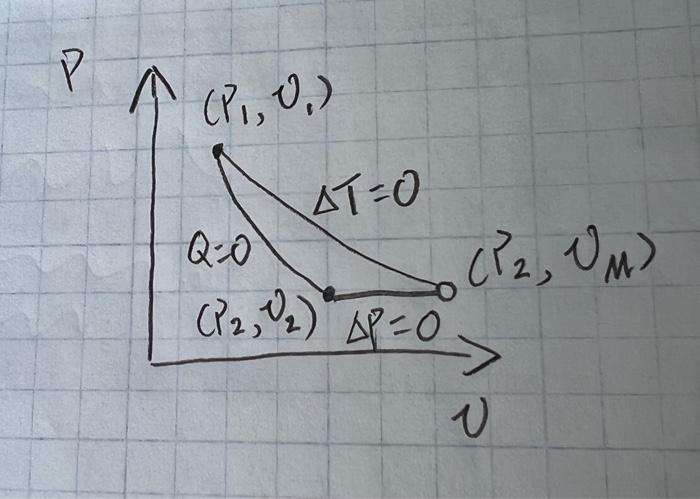 P
(P₁, υ₁)
ΔT=0
Q=0
(P₂, υₘ)
(P₂, υ₂)
ΔP=0
υ